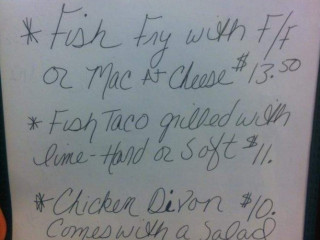 * Fish Fry with F/F
or Mac & Cheese $13.50
* Fish Taco grilled with
lime - Hard or Soft $11.
* Chicken Divon $10.
Comes with a Salad